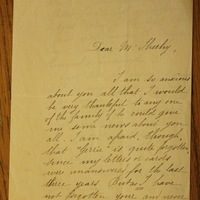 Dear Mr Sheehy,
I am so anxious
about you all that I would
be very thankful to any one
of the family if he could give
me some news about you
all. I am afraid, though,
that "Ferrie" is quite forgotten,
since my letters & cards
were unanswered for the last
three years. But as I have
not forgotten your